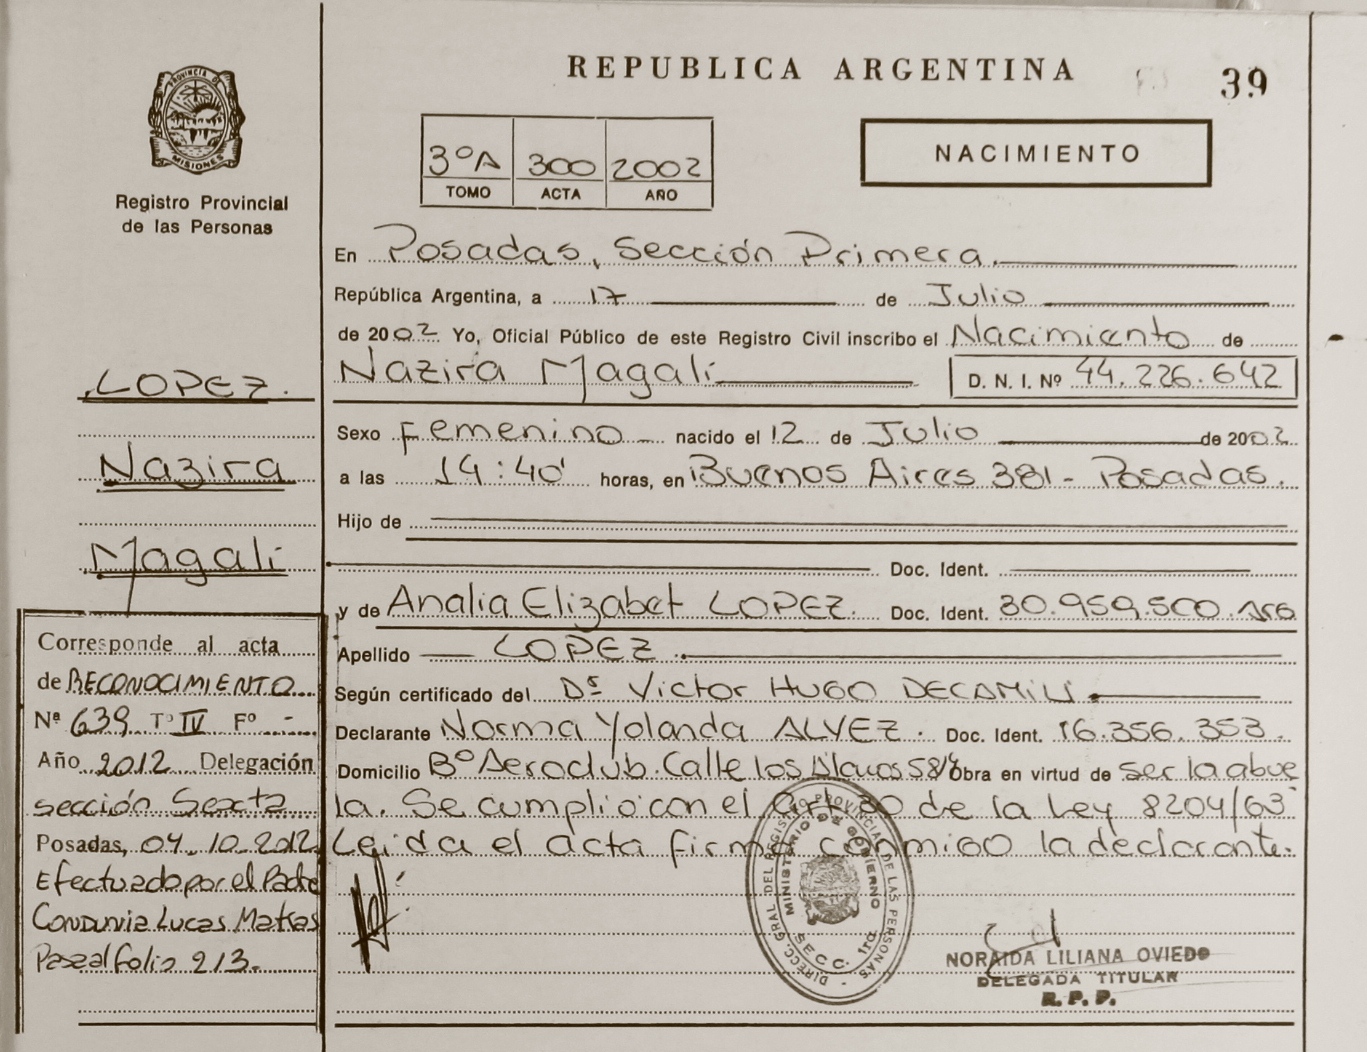 REPUBLICA ARGENTINA
39
PROVINCIA DE
MISIONES
Registro Provincial
de las Personas
3ºA 300 2002
TOMO ACTA AÑO
NACIMIENTO
En Posadas, Sección Primera.
República Argentina, a 17 de Julio
de 2002 Yo, Oficial Público de este Registro Civil inscribo el Nacimiento de
Nazira Magalí D. N. I. Nº 44.226.642
Sexo Femenino nacido el 12 de Julio de 2002
a las 14:40' horas, en Buenos Aires 381 - Posadas.
Hijo de
Doc. Ident.
y de Analia Elizabet LOPEZ. Doc. Ident. 30.959.500. Arg
Apellido LOPEZ
Según certificado del Dr Victor HUGO DECAMILI
Declarante Norma Yolanda ALVEZ. Doc. Ident. 16.356.353.
Domicilio Bº Aeroclub. Calle los 58 Obra en virtud de ser la abue
la. Se cumplio con el Art. 30 de la Ley 8204/63
Leida el acta firma conmigo la declarante.
LOPEZ.
Nazira
Magalí
Corresponde al acta
de RECONOCIMIENTO
Nº 639 Tº IV Fº -
Año 2012 Delegación
sección Sexta
Posadas, 04.10.2012
Efectuado por el Padre
Lucas Matias
Pase al folio 213.
DIRECC. GRAL DEL REGISTRO PROVINCIAL DE LAS PERSONAS
MINISTERIO DE GOBIERNO
SECC. 1ra.
NORAIDA LILIANA OVIEDO
DELEGADA TITULAR
R. P. P.